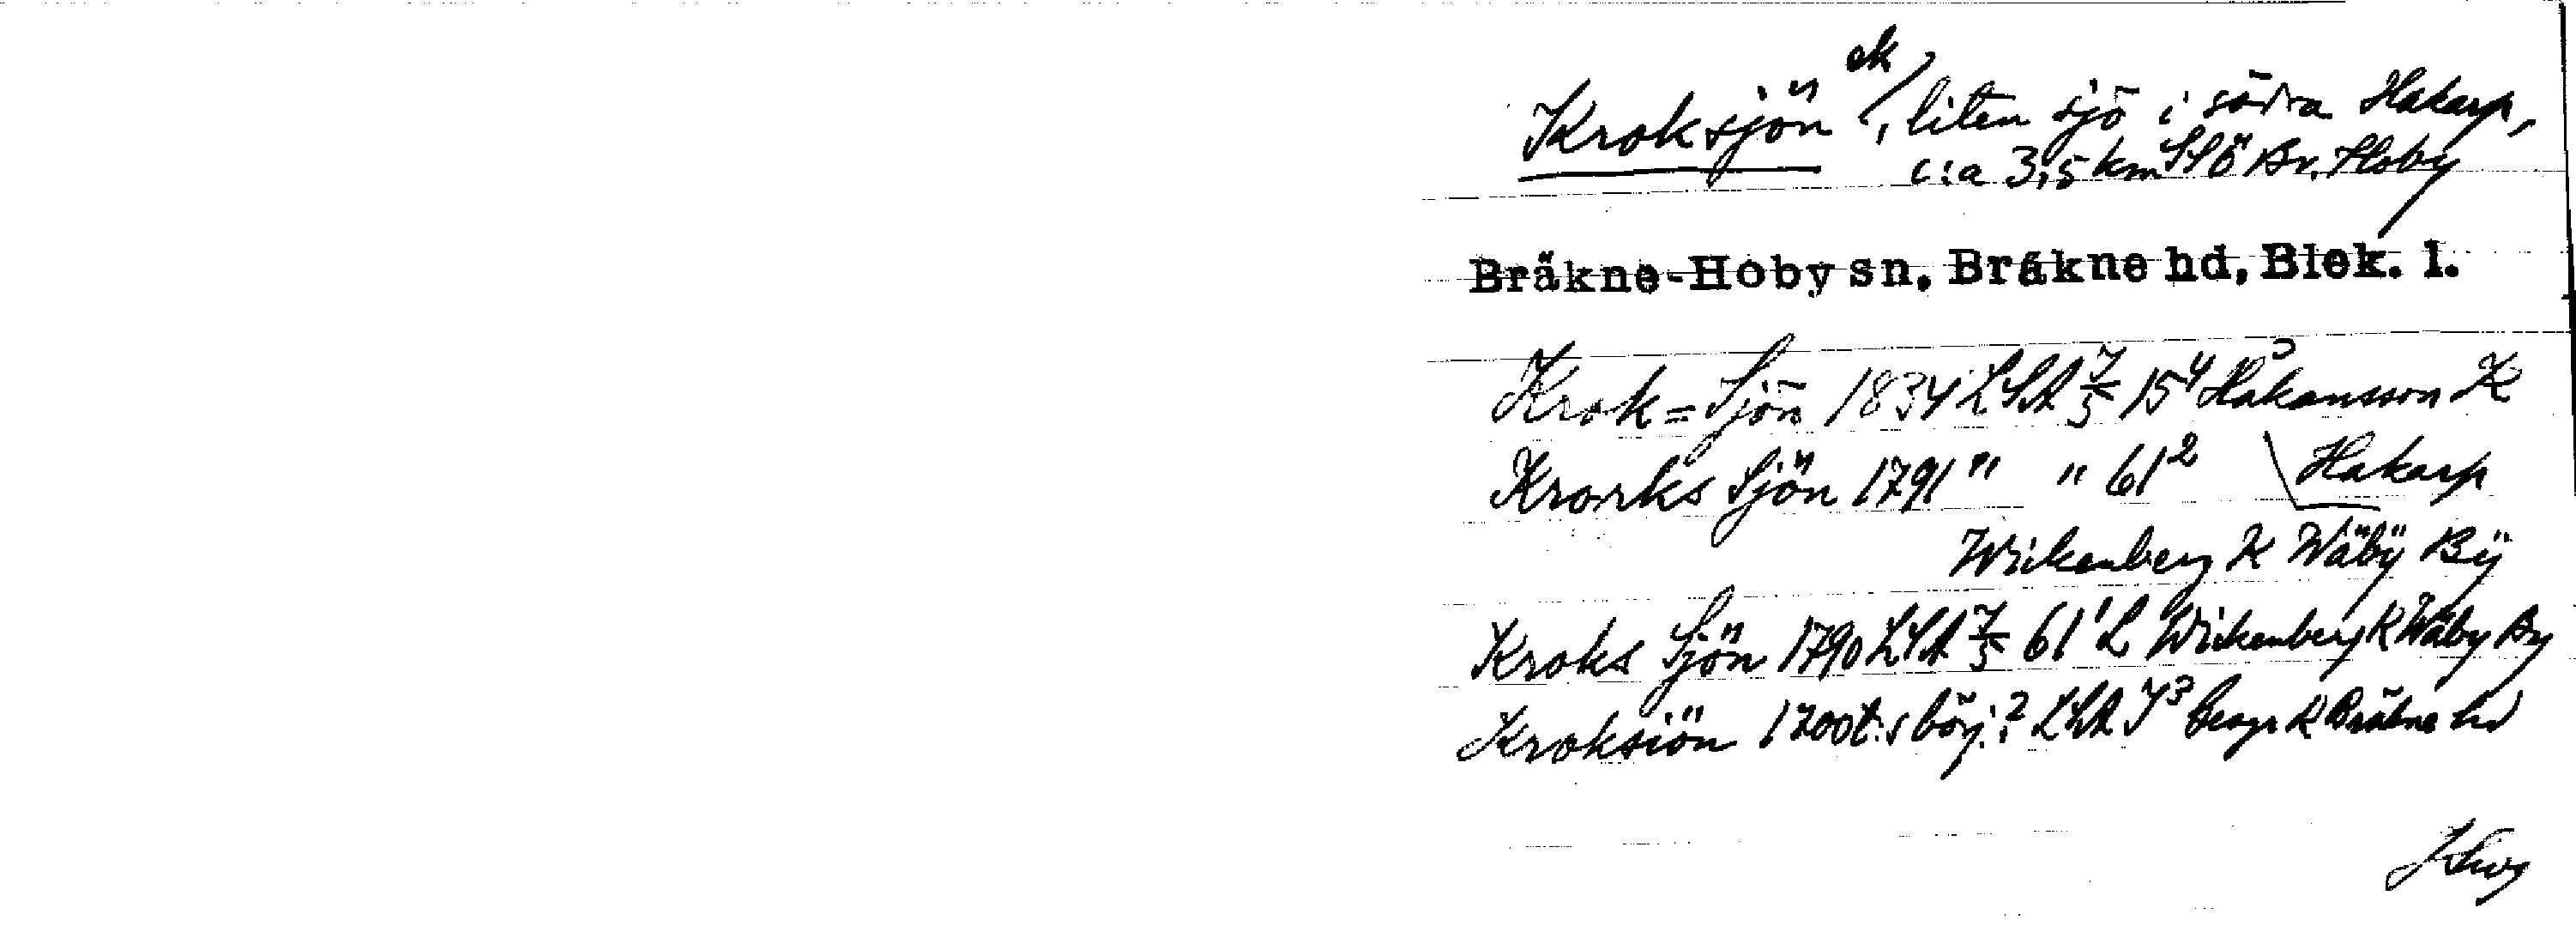 Kroksjön ek, liten sjö i södra Hakarp,
c:a 3,5 km SSÖ Br. Hoby
Bräkne-Hoby sn. Bräkne hd, Blek. l.
Krok=Sjön 1834 LSA 7/5 15⁴ Håkansson K
Hakarp
Kroorks Sjön 1791 " " 61²
Wickenberg K Wäbÿ Bÿ
Kroks Sjön 1790 LSA 7/5 61¹ L Wickenberg K Wäby By
Kroksiön 1700t:s börj.? LSA Y³ Geogr K Bräkne hd